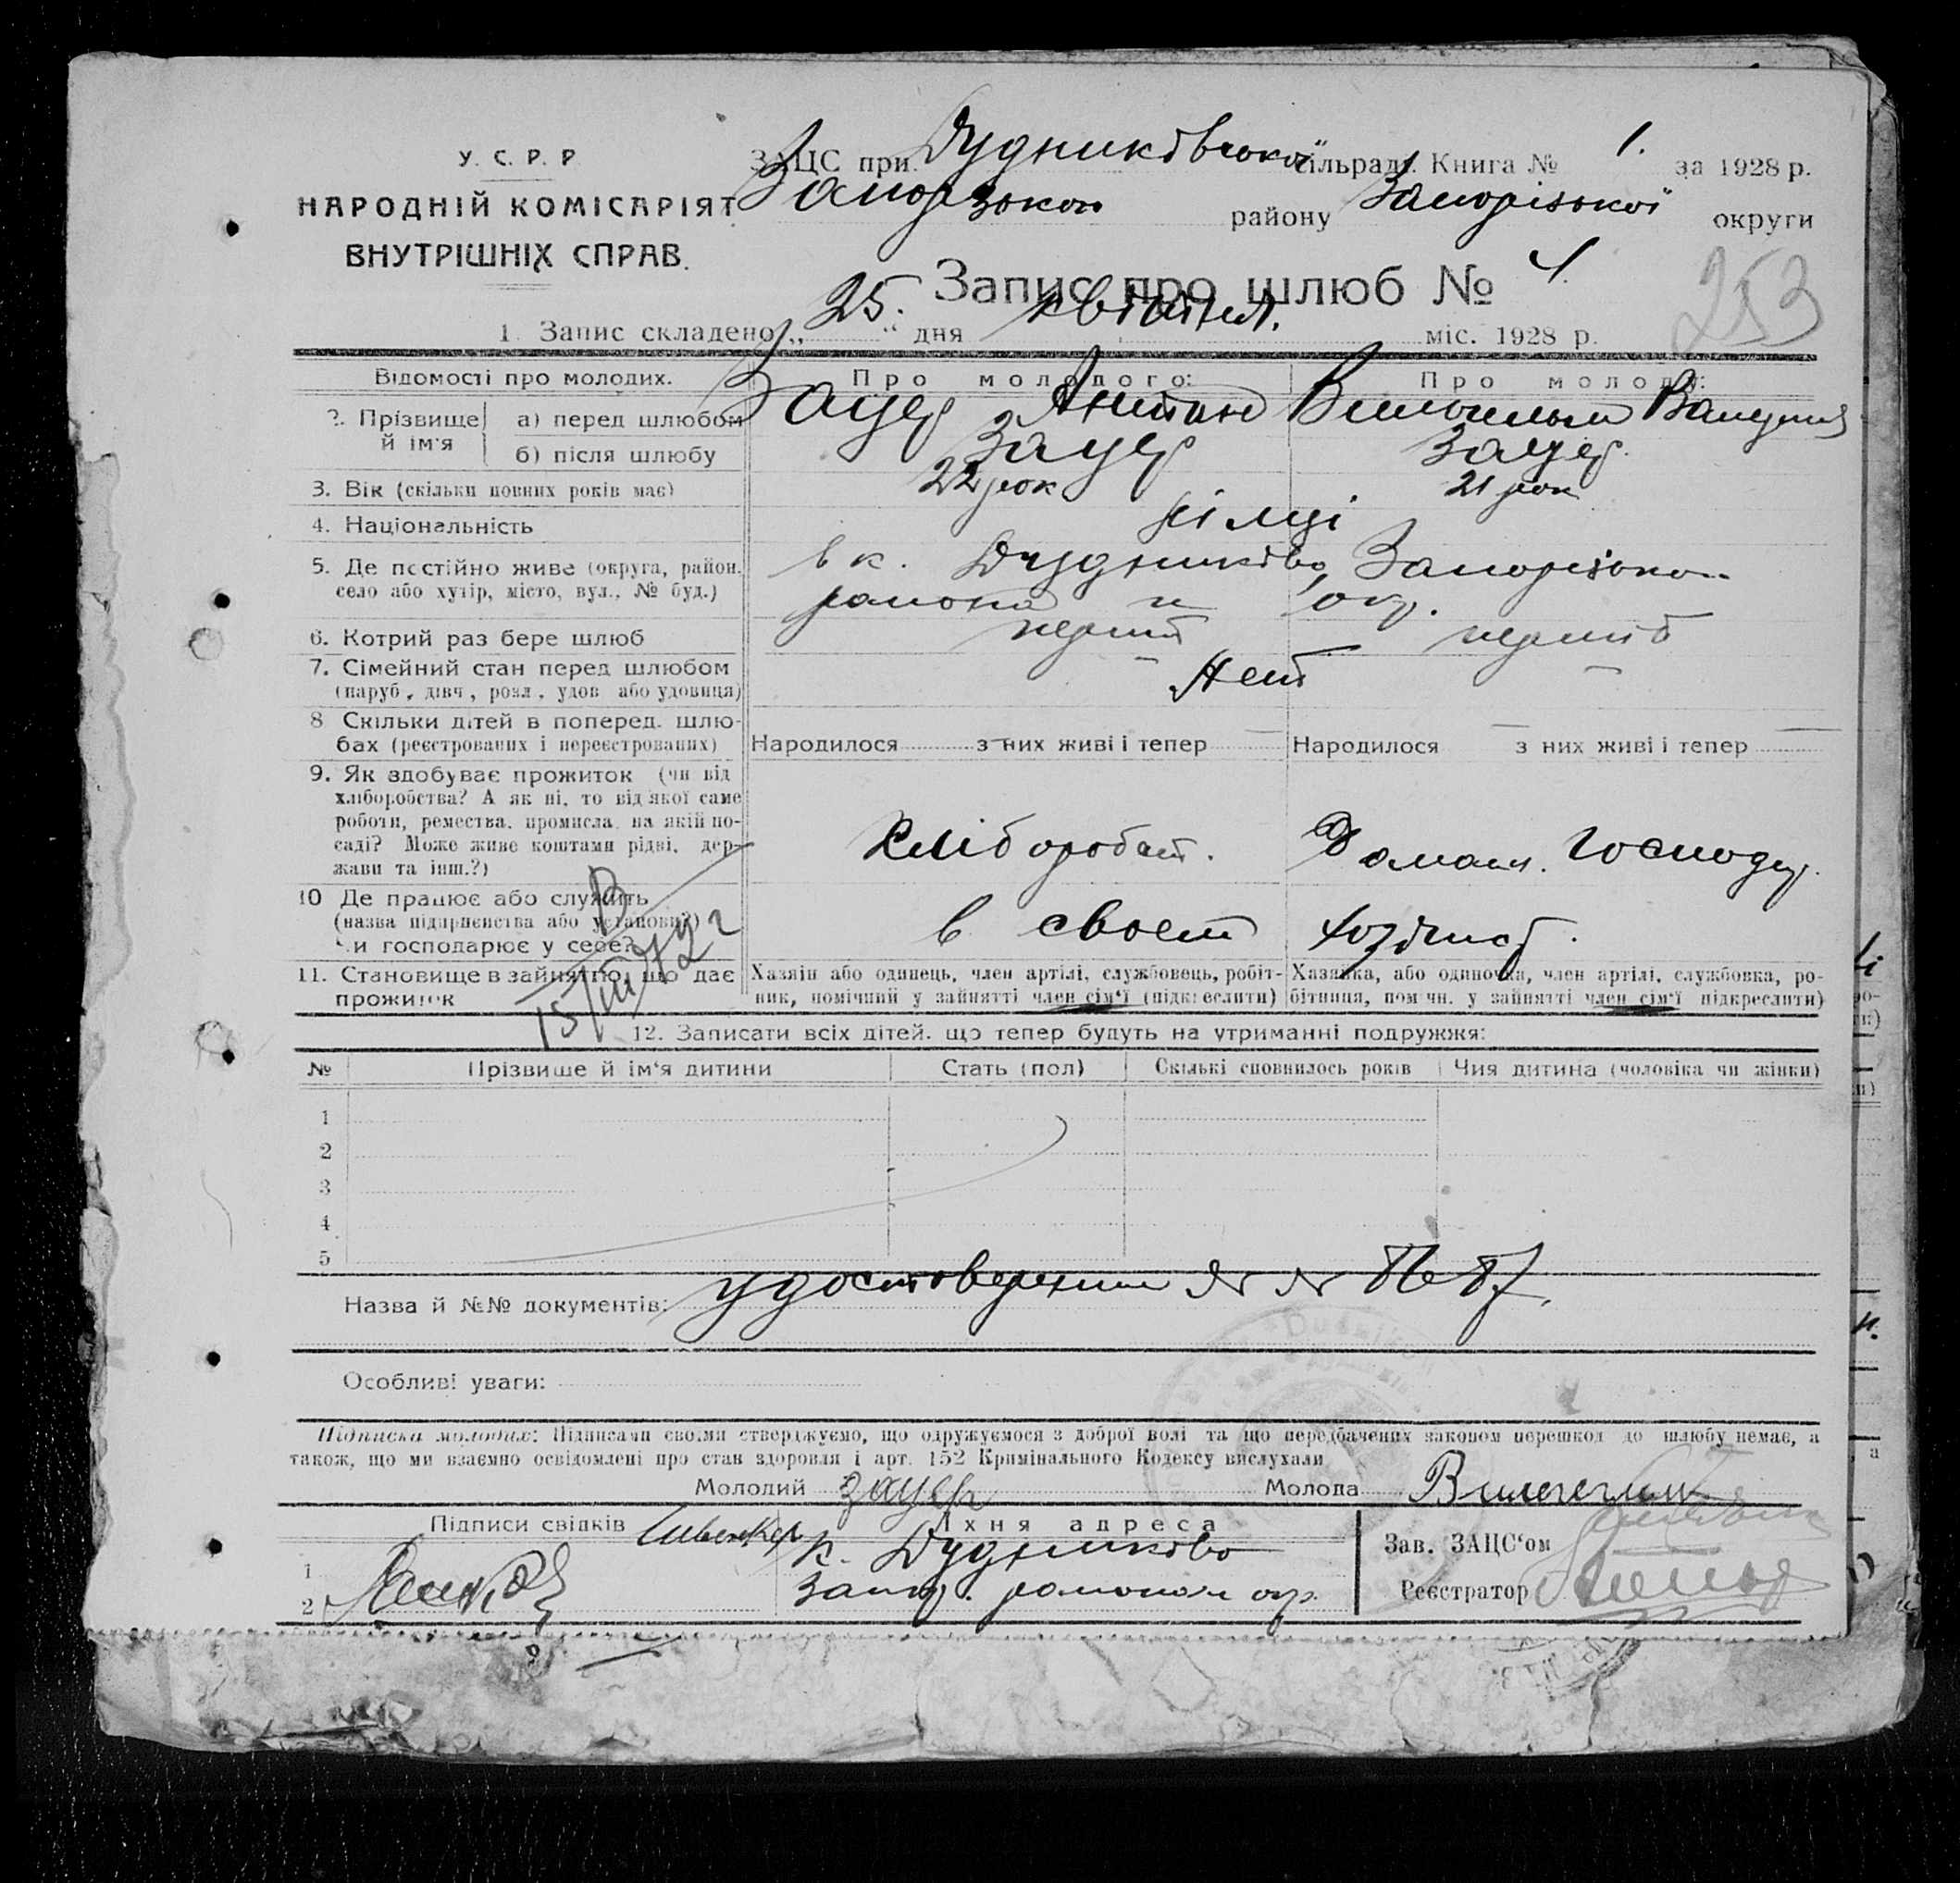 У. С. Р. Р.
НАРОДНІЙ КОМІСАРІЯТ
ВНУТРІШНІХ СПРАВ.
ЗАЦС при Дудниківської сільраді Книга № 1. за 1928 р.
Запорізького району Запорізької округи
Запис про шлюб № 4.
253
1. Запис складено „ 25. “ дня квітня. міс. 1928 р.
Відомості про молодих. Про молодого: Про молоду:
2. Прізвище й ім'я а) перед шлюбом Зауер Антон
б) після шлюбу Зауер Зауер.
3. Вік (скільки повних років має) 22 рок 21 рок
4. Національність
5. Де постійно живе (округа, район, село або хутір, місто, вул., № буд.) в к. Дудниково, Запорізько
района и окр.
6. Котрий раз бере шлюб перший перший
7. Сімейний стан перед шлюбом
(паруб., дівч., розл., удов або удовиця)
Нет
8 Скільки дітей в поперед. шлюбах (реєстрованих і нереєстрованих)
Народилося з них живі і тепер Народилося з них живі і тепер
9. Як здобуває прожиток (чи від
хліборобства? А як ні, то від якої саме
роботи, ремества, промисла, на якій по-
саді? Може живе коштами рідні, дер-
жави та інш.?)
Хлібороб Домашн. господ.
10 Де працює або служить
(назва підприємства або установи?)
Чи господарює у себе?
в своем
11. Становище в зайнятті, що дає
прожиток
Хазяін або одинець, член артілі, службовець, робіт-
ник, помічний у зайнятті член сім'ї (підкреслити)
Хазяйка, або одиночка, член артілі, службовка, ро-
бітниця, пом чн. у зайнятті член сім'ї підкреслити)
12. Записати всіх дітей, що тепер будуть на утриманні подружжя:
№ Прізвище й ім'я дитини Стать (пол) Скількі сповнилось років Чия дитина (чоловіка чи жінки)
1
2
3
4
5
Назва й №№ документів: удостоверение № № 86 87.
Особливі уваги:
Підписка молодих: Підписами своїми стверджуємо, що одружуємося з доброї волі та що передбачених законом перешкод до шлюбу немає, а
також, що ми взаємно освідомлені про стан здоровля і арт. 152 Кримінального Кодексу вислухали
Молодий Зауер Молода
Підписи свідків Їхня адреса
1 к. Дудниково
2 Запор. района окр.
Зав. ЗАЦС'ом
Реєстратор